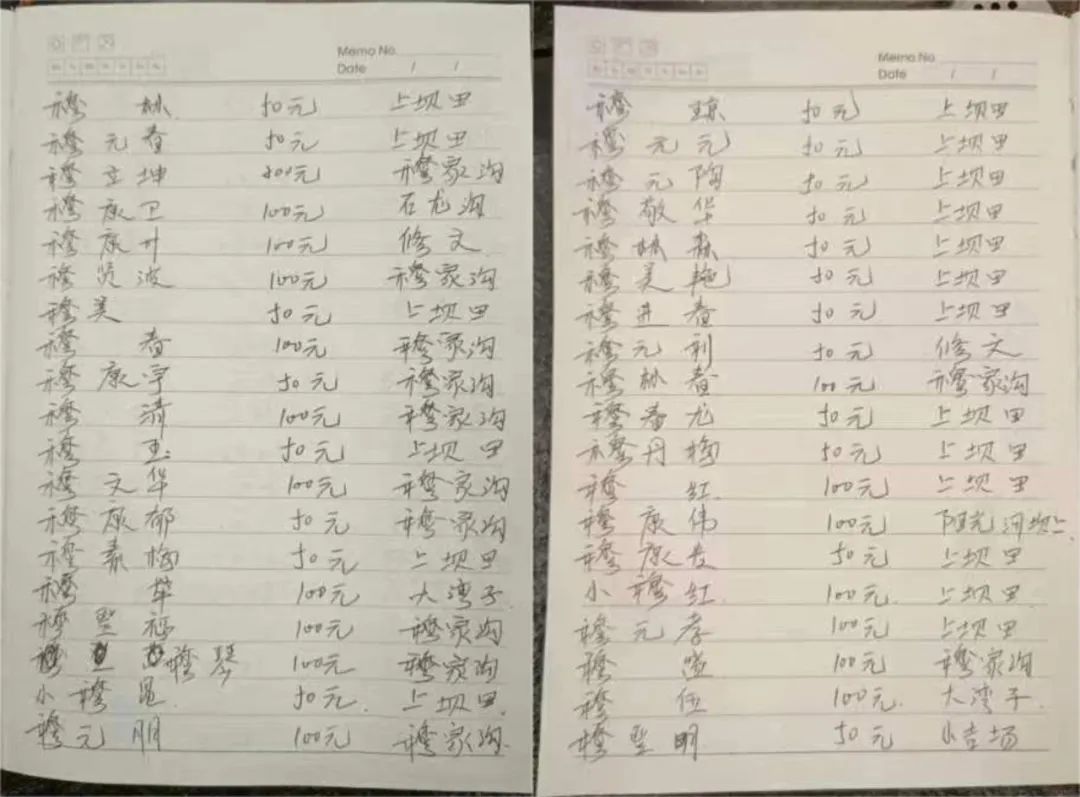 Memo No.
Date / /
穆 林 50元 上坝田
穆元春 50元 上坝田
穆立坤 200元 穆家沟
穆康卫 100元 石龙沟
穆康升 100元 修文
穆贤波 100元 穆家沟
穆美 50元 上坝田
穆 春 100元 穆家沟
穆康宇 50元 穆家沟
穆 清 100元 穆家沟
穆 玉 50元 上坝田
穆文华 100元 穆家沟
穆康郁 50元 穆家沟
穆素梅 50元 上坝田
穆 华 100元 大湾子
穆 100元 穆家沟
穆琴 100元 穆家沟
小穆昆 50元 上坝田
穆元朋 100元 穆家沟
Memo No.
Date / /
穆 琼 50元 上坝田
穆元元 50元 上坝田
穆元陶 50元 上坝田
穆敬华 50元 上坝田
穆林森 50元 上坝田
穆美艳 50元 上坝田
穆进春 50元 上坝田
穆元利 50元 修文
穆林春 100元 穆家沟
穆春龙 50元 上坝田
穆丹梅 50元 上坝田
穆 红 100元 上坝田
穆康伟 100元 阳光河坝上
穆康友 50元 上坝田
小穆红 100元 上坝田
穆元孝 100元 上坝田
穆 100元 穆家沟
穆 伍 100元 大湾子
穆 明 50元 小吉场